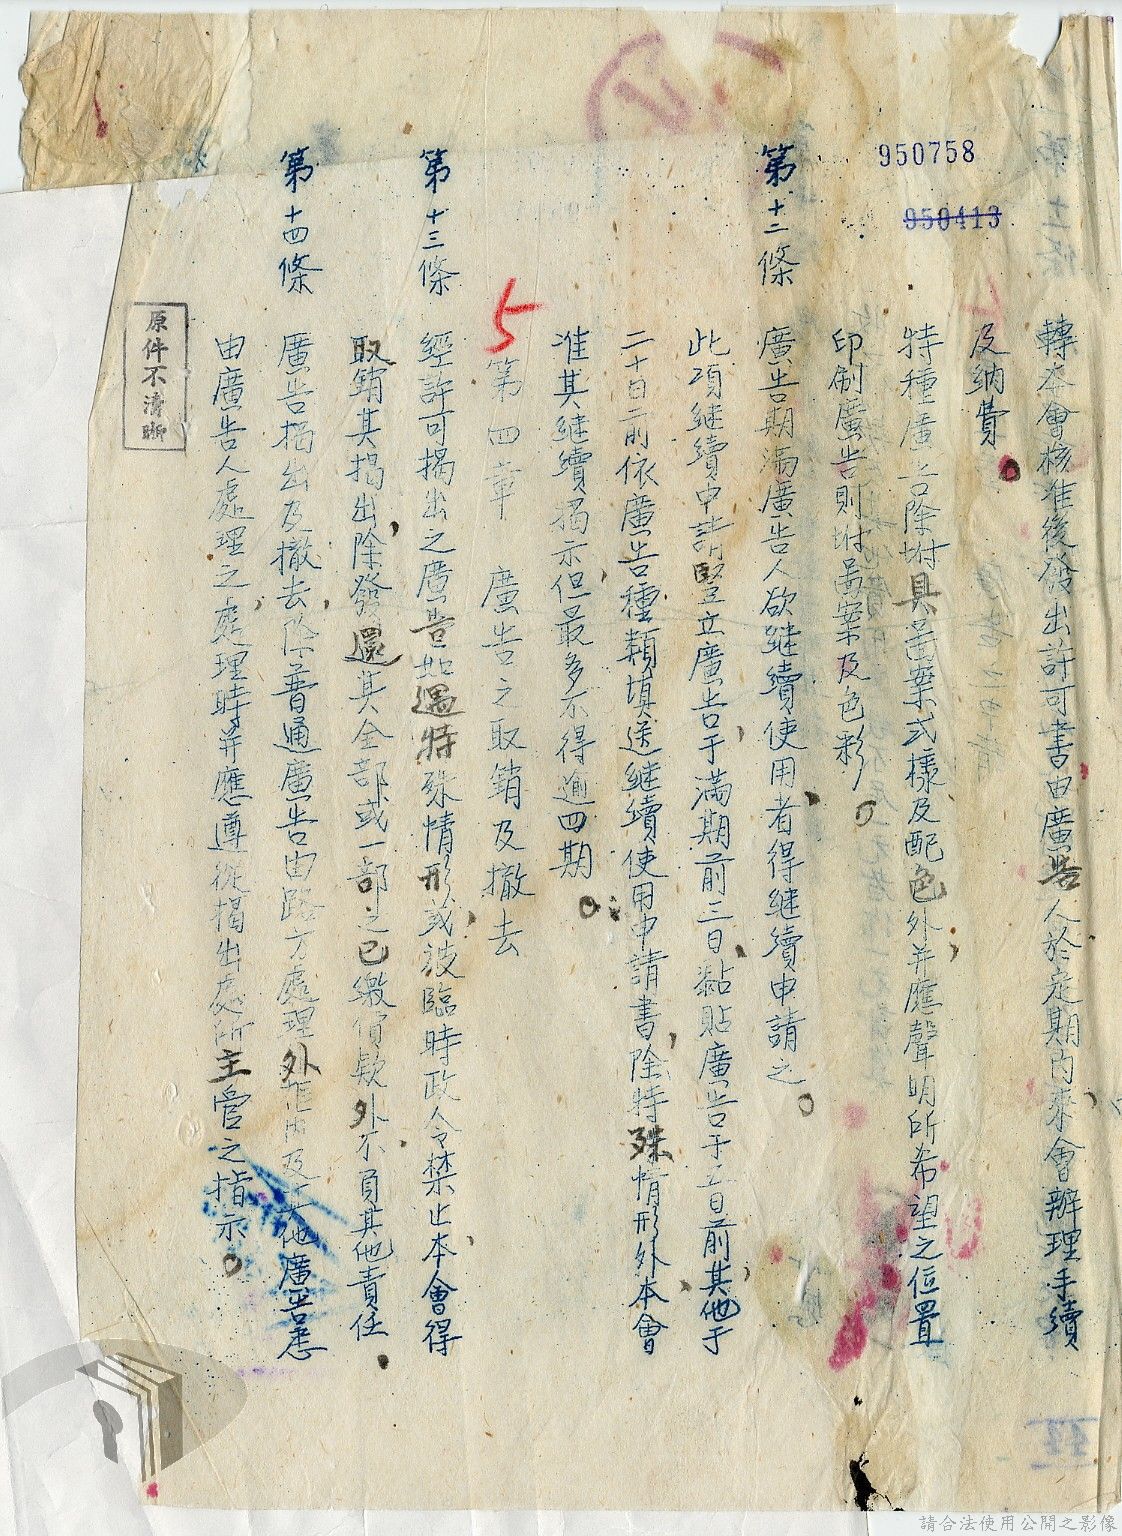 950758
950413
轉本會核准後發出許可書由廣告人於定期內來會辦理手續
及納費。
特種廣告除附具圖案式樣及配色外并應聲明所希望之位置
印刷廣告則附圖案及色彩。
第十二條 廣告期滿廣告人欲繼續使用者得繼續申請之。
此項繼續申請豎立廣告于滿期前三日黏貼廣告于二日前其他于
二十日前依廣告種類填送繼續使用申請書除特殊情形外本會
准其繼續揭示但最多不得逾四期。
5
第四章 廣告之取銷及撤去
第十三條 經許可揭出之廣告如遇特殊情形或被臨時政令禁止本會得
取銷其揭出,除發還其全部或一部之已繳價款外不負其他責任
第十四條 廣告揭出及撤去除普通廣告由路方處理外及其他廣告悉
由廣告人處理之處理時并應遵從揭出處所主管之指示。
原件不清晰
請合法使用公開之影像